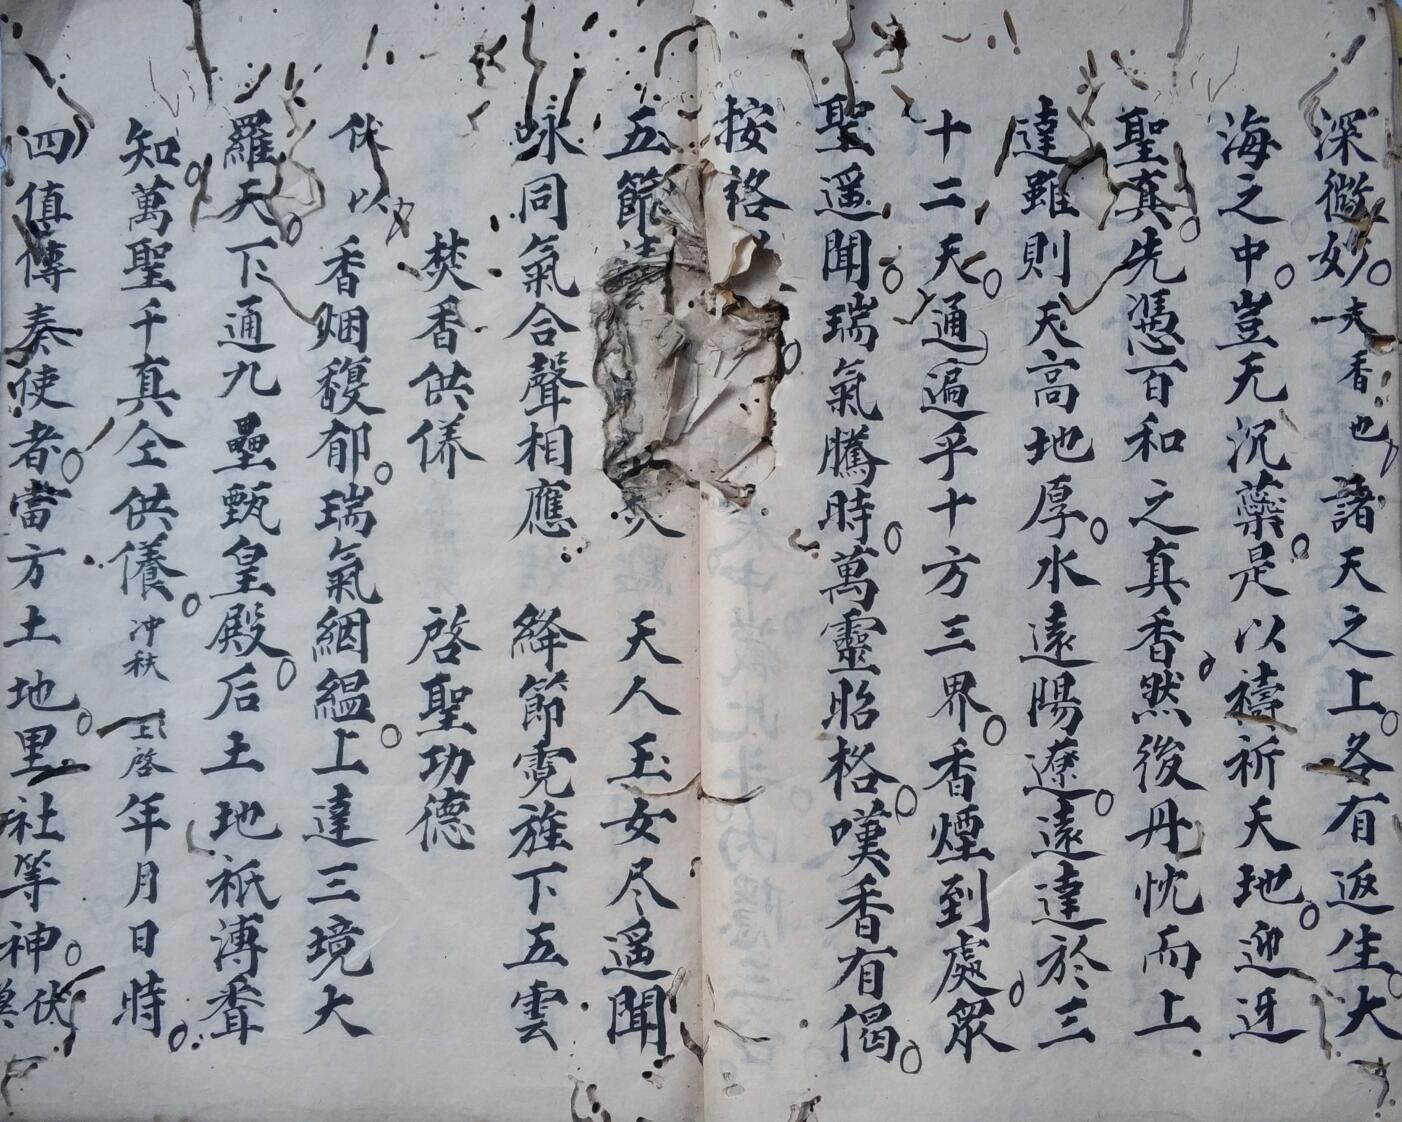 深微妙夫香也諸天之上各有返生大
海之中豈无沉藥是以禱祈天地迎迓
聖真先憑百和之真香然後丹忱而上
達雖則天高地厚水遠陽遼遠達於三
十二天通遍乎十方三界香煙到處眾
聖遥聞瑞氣騰時萬靈昭格嘆香有偈
按
五節 天人玉女尽遥聞
咏同氣合聲相應 絳節霓旌下五雲
焚香供養 啓聖功德
伏以香烟馥郁瑞氣絪縕上達三境大
羅天下通九壘甄皇殿后土地祇溥聋
知萬聖千真仝供養冲秩 上啓年月日時
四值傳奏使者當方土地里社等神伏